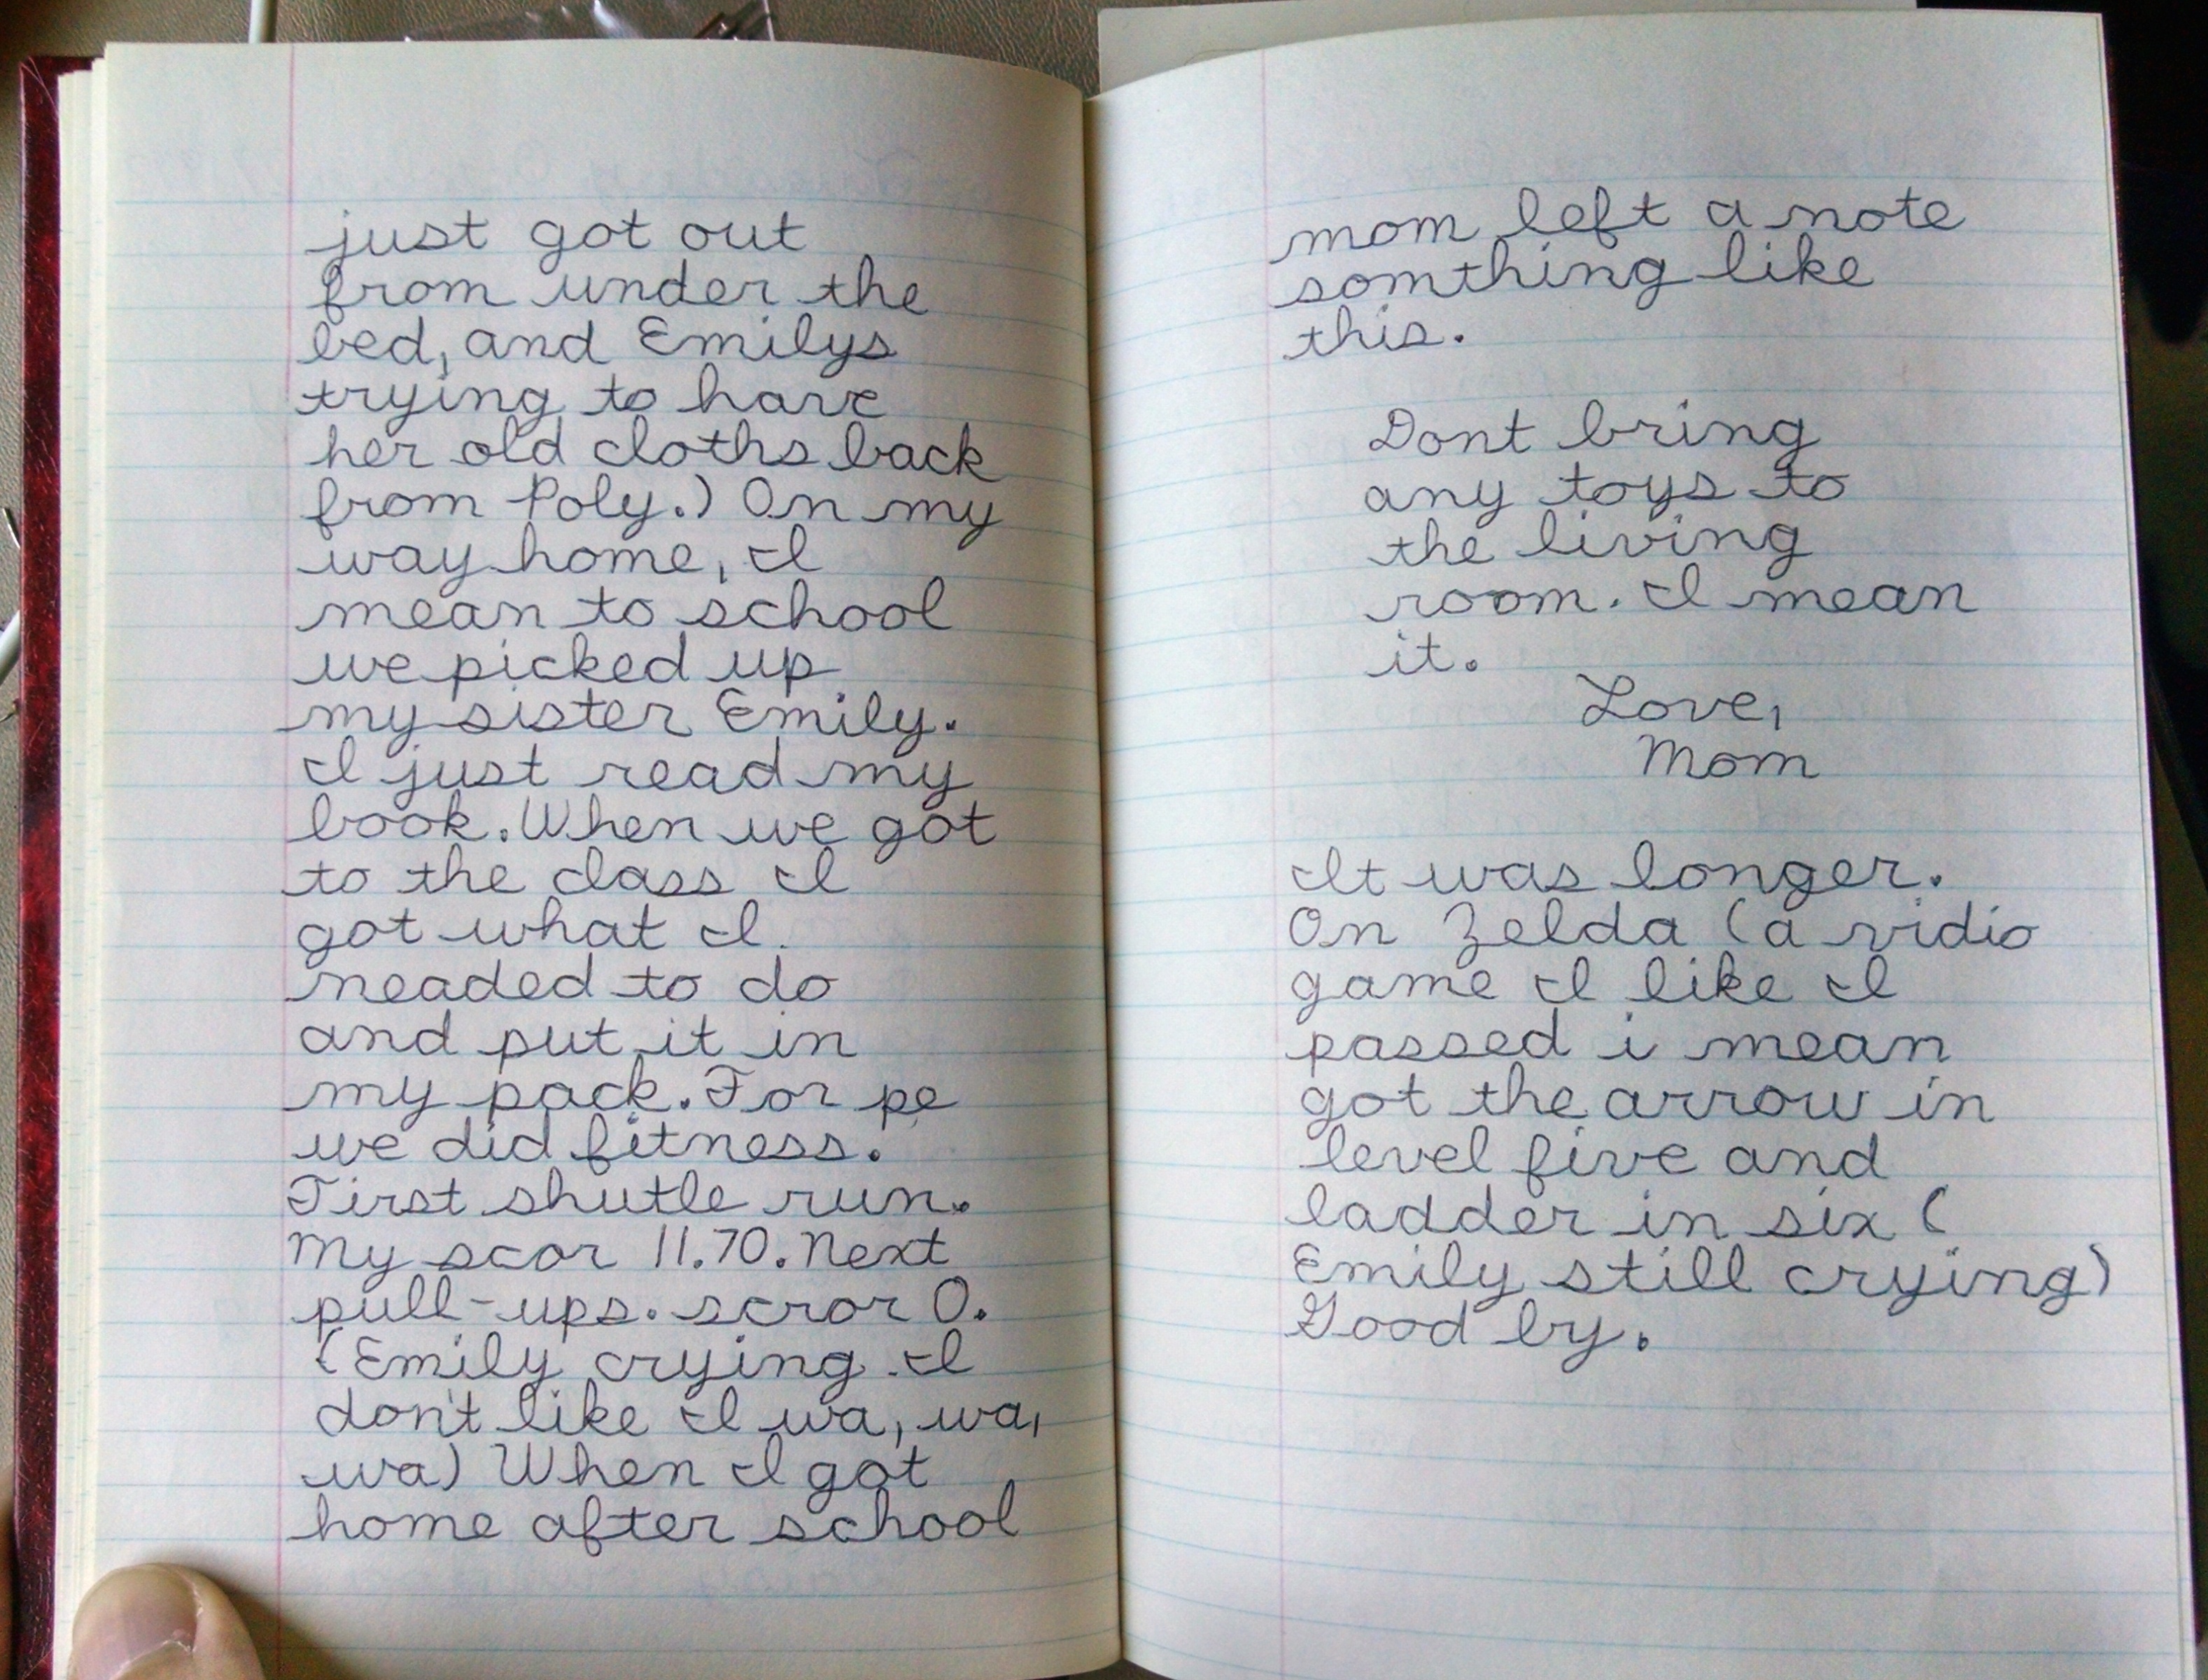 just got out
from under the
bed, and Emilys
trying to have
her old cloths back
from Poly.) On my
way home, I
mean to school
we picked up
my sister Emily.
I just read my
book. When we got
to the class I
got what I
neaded to do
and put it in
my pack. For pe
we did fitness.
First shutle run.
My scor 11.70. Next
pull-ups. scror 0.
(Emily crying I
don't like I wa, wa,
wa) When I got
home after school
mom left a note
somthing like
this.
Dont bring
any toys to
the living
room. I mean
it.
Love,
Mom
It was longer.
On Zelda (a vidio
game I like I
passed i mean
got the arrow in
level five and
ladder in six (
Emily still crying)
Good by.